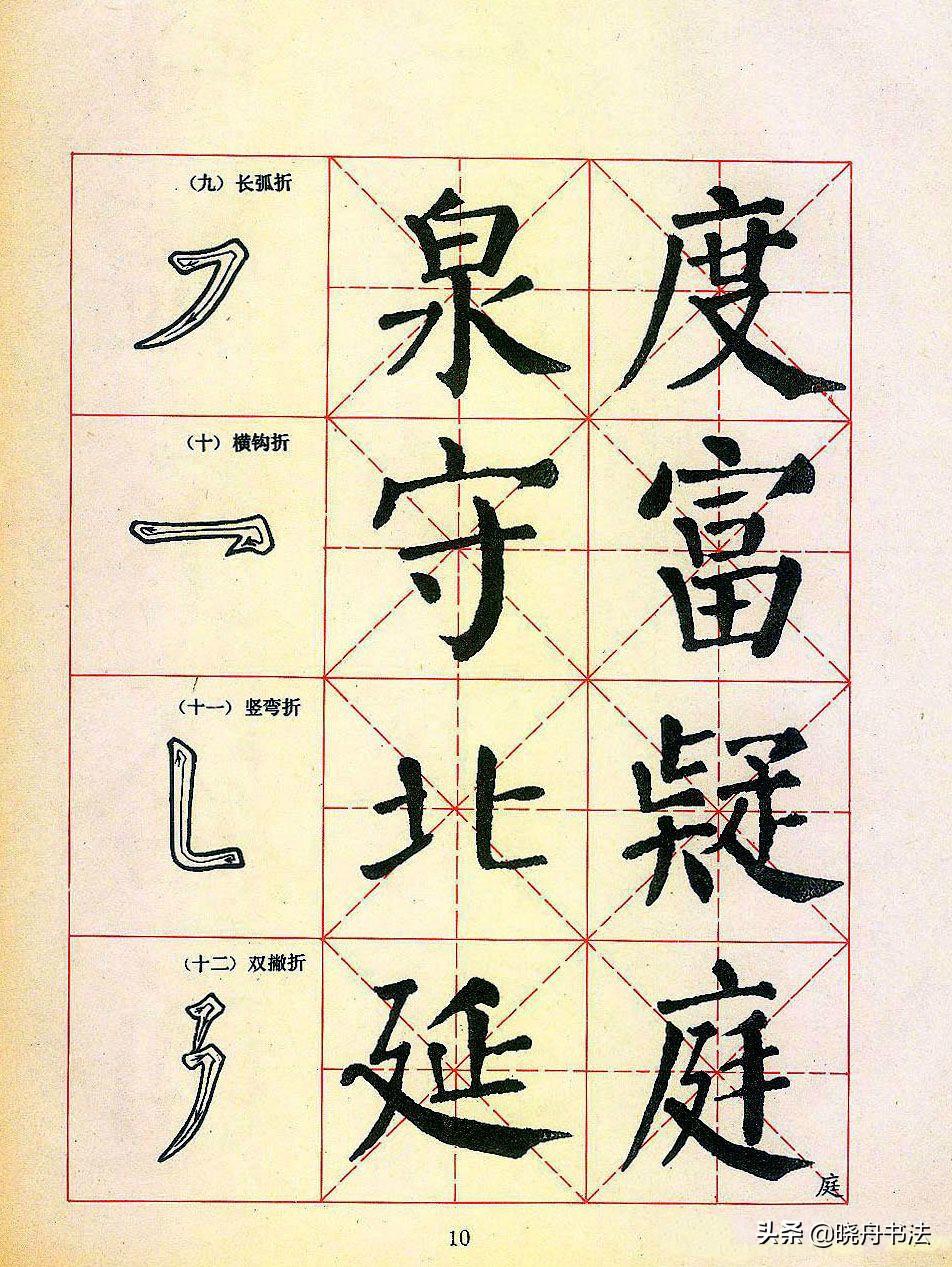 （九）长弧折
泉
度
（十）横钩折
守
富
（十一）竖弯折
北
疑
（十二）双撇折
延
庭
庭
10
头条 @晓舟书法